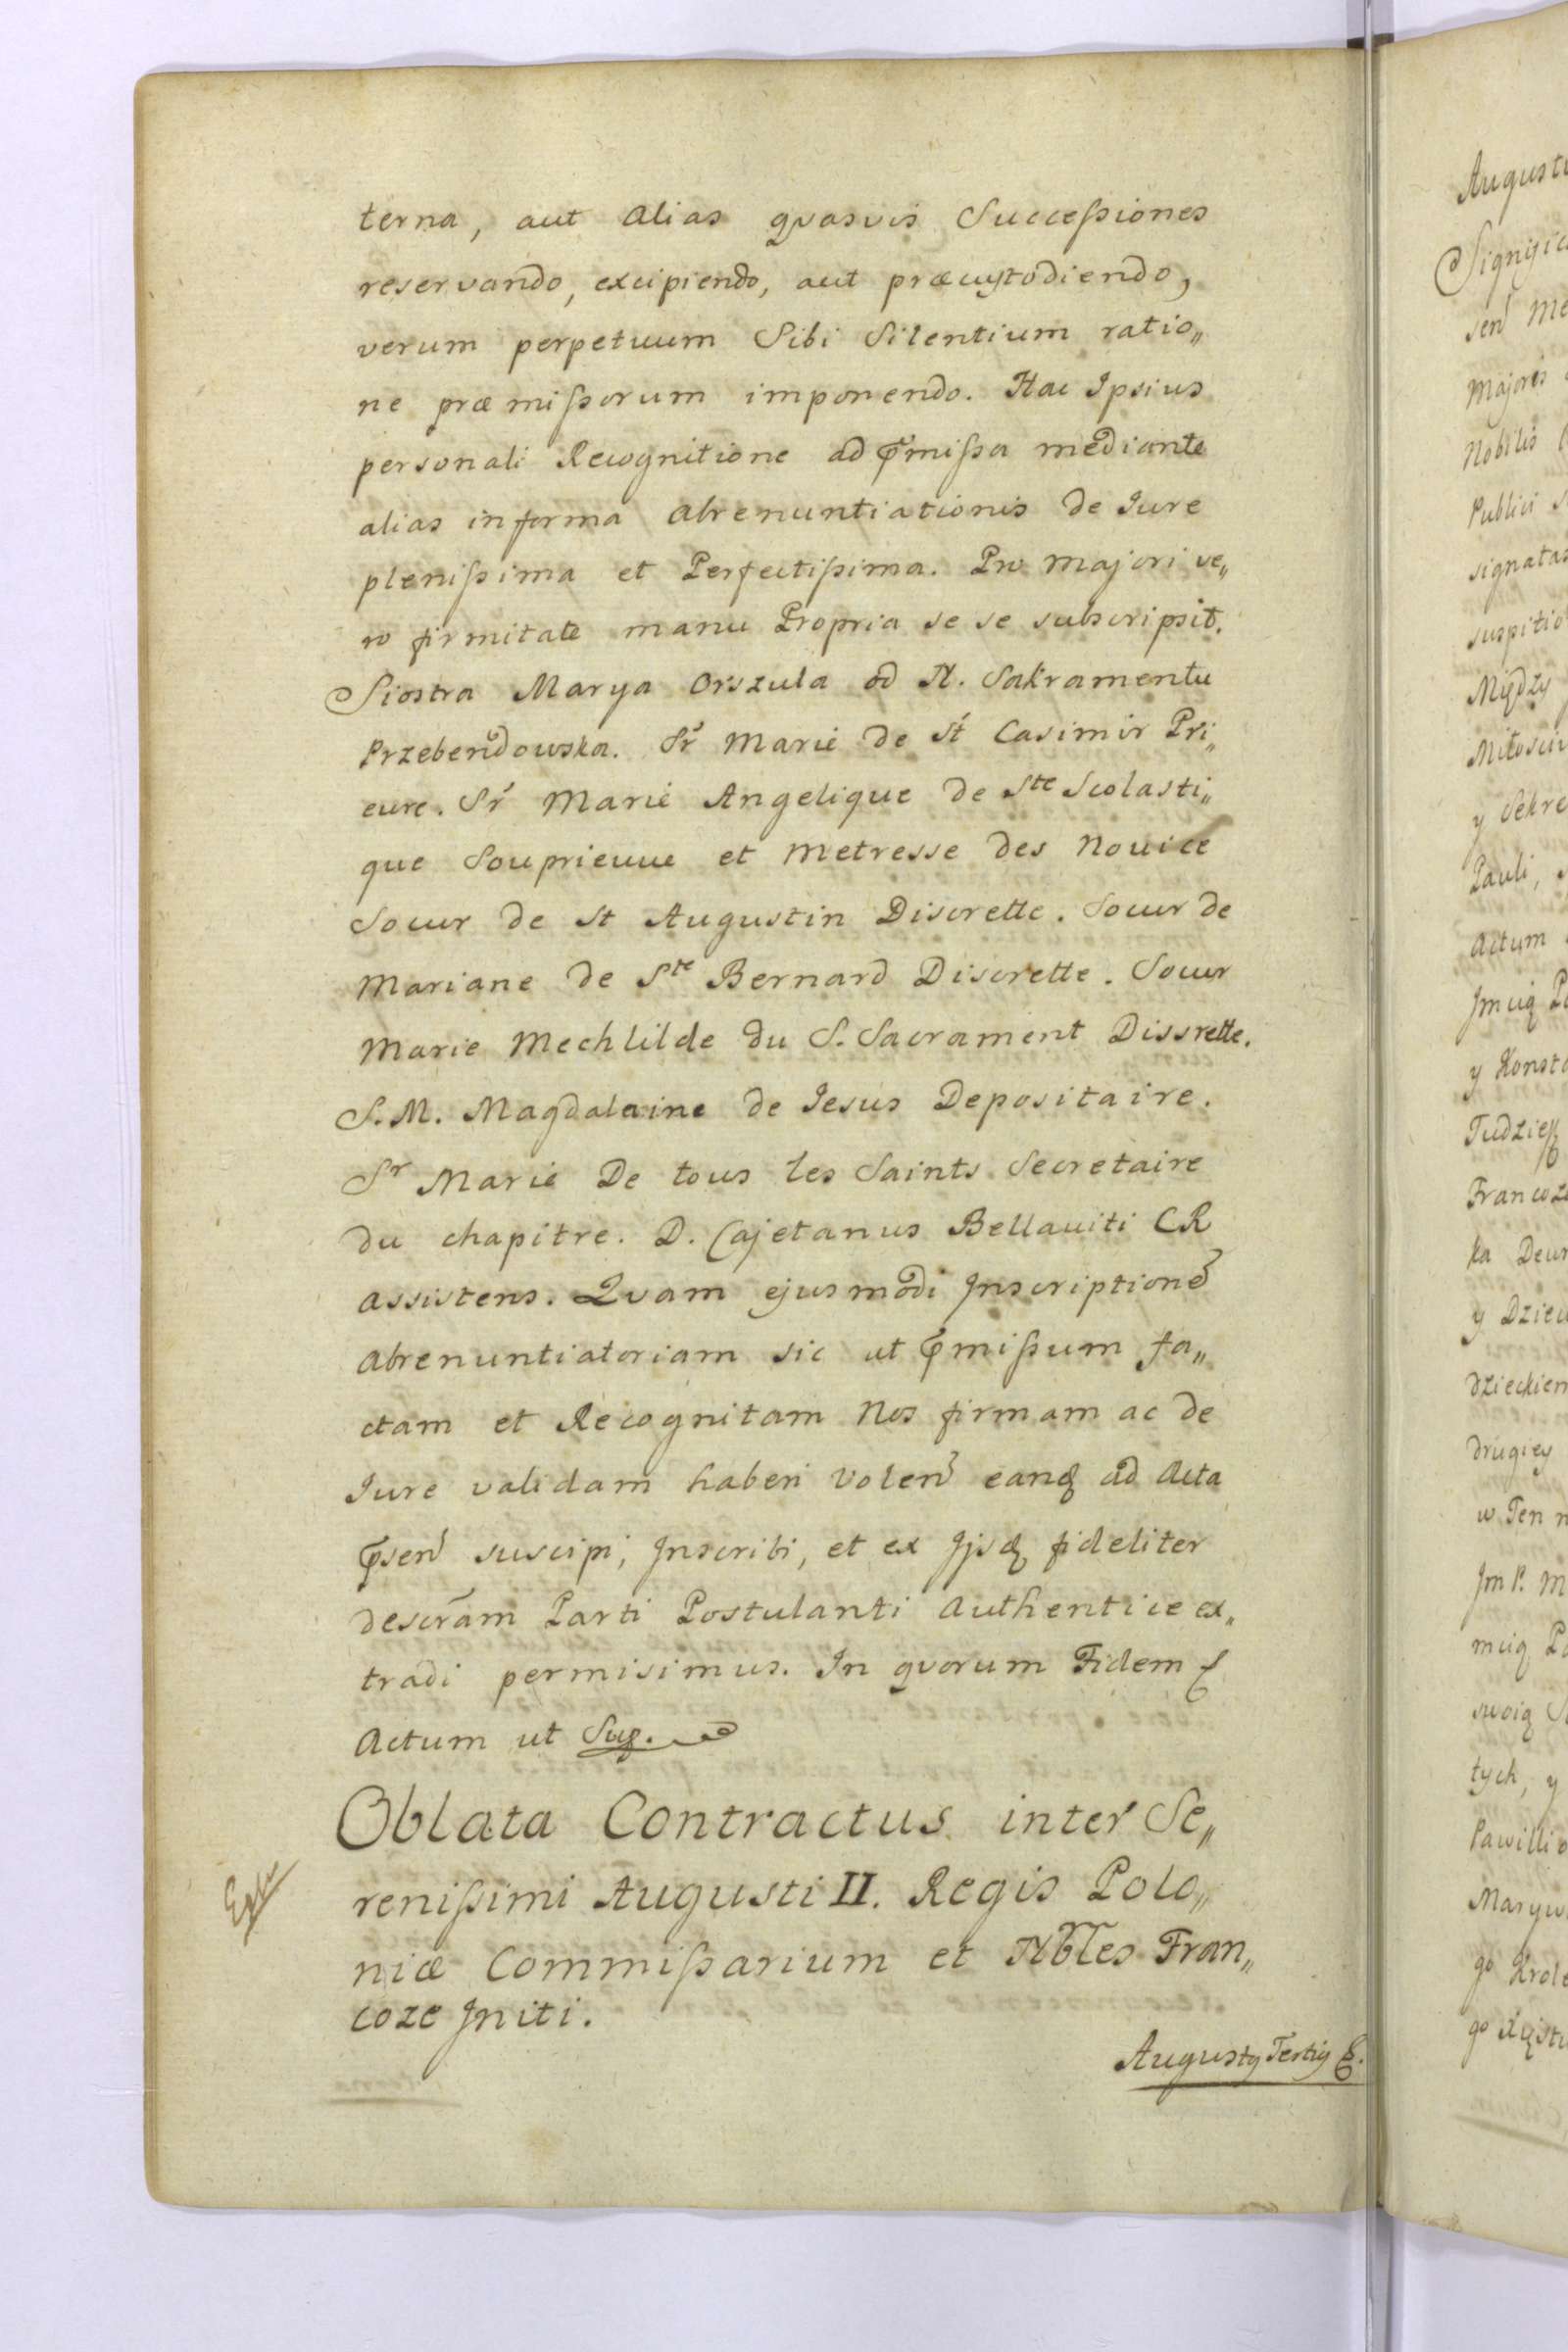 terna, aut alias quasvis Successiones
reservando, excipiendo, aut præcustodiendo,
verum perpetuum Sibi Silentium ratio„
ne præmissorum imponendo. Hac Ipsius
personali Recognitione ad p̄missa mediante
alias in forma abrenuntiationis de Iure
plenissima et Perfectissima. Pro majori ve„
ro firmitate manu Propria se se subscripsit.
Siostra Marya Orszula od N. Sakramentu
Przebendowska. Sr̃ Marie de St Casimir Pri„
eure. Sr̃ Marie Angelique de Ste Scolasti„
que Souprieuue et Metresse des Novice
Soeur de St Augustin Discrette. Soeur de
Mariane de Ste Bernard Discrette. Soeur
Marie Mechlilde du S. Sacrament Dissrette.
S. M. Magdalaine de Jesus Depositaire.
Sr Marie De tous les Saints Secretaire
du chapitre. D. Cajetanus Bellaviti CR
assistens. Quam ejusmodi Inscriptionẽ
abrenuntiatoriam sic ut p̄missum fa„
ctam et Recognitam Nos firmam ac de
Iure validam haberi Volen̄ eanq́ ad Acta
p̄sen̄ suscipi, Inscribi, et ex Ijsq́ fideliter
descr̃am Parti Postulanti Authentice ex„
tradi permisimus. In quorum Fidem &
Actum ut Sup.
Oblata Contractus inter Se„
renissimi Augusti II. Regis Polo„
niæ Commissarium et Nb̃les Fran„
coze Initi.
Augustg Tertig &.
Augustu
Significa
sen̄ Me
Majoris
Nobilis
Publici S
signatas
suspitio
Między
Miłosciw
y Sekre
Pauli,
Actum
Jmciq Pa
y Konsta
Tudzież
Francoz
ka Deur
y Dziew
dzieckiem
drugiey
w Ten
Jm P. M
mciq Pa
swoiq
tych, y
Pawilli
Maryw
go Krole
go Xięst